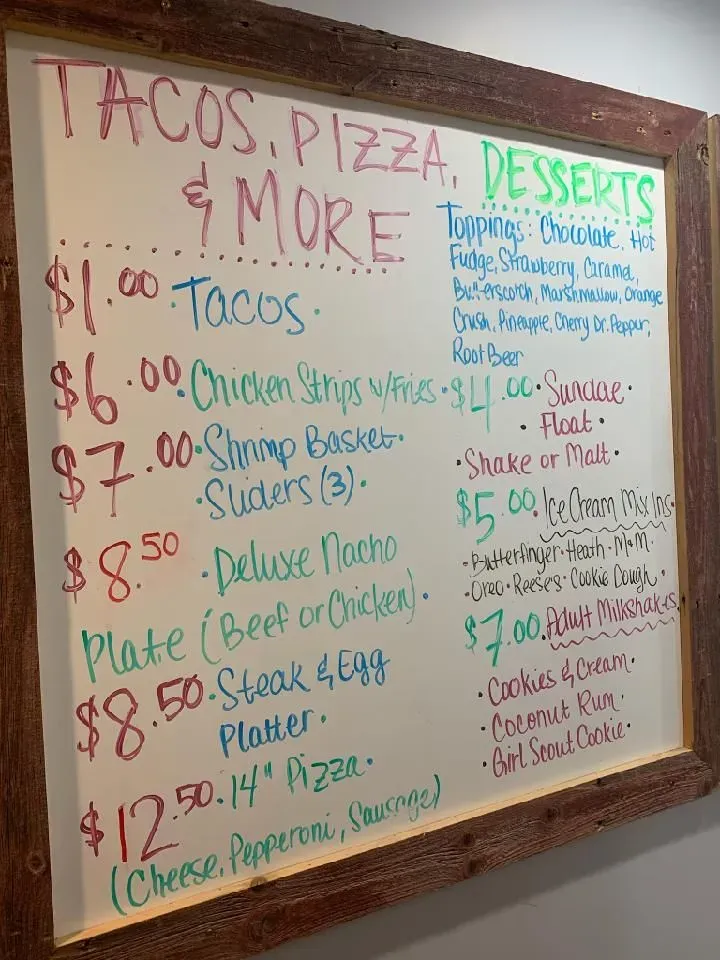 TACOS, PIZZA,
& MORE
$1.00 · Tacos ·
$6.00 · Chicken Strips w/Fries ·
$7.00 · Shrimp Basket ·
· Sliders (3) ·
$8.50 · Deluxe Nacho
Plate (Beef or Chicken) ·
$8.50 · Steak & Egg
Platter ·
$12.50 · 14" Pizza ·
(Cheese, Pepperoni, Sausage)
DESSERTS
Toppings: Chocolate, Hot
Fudge, Strawberry, Caramel,
Butterscotch, Marshmallow, Orange
Crush, Pineapple, Cherry Dr. Pepper,
Root Beer
$4.00 · Sundae ·
· Float ·
· Shake or Malt ·
$5.00 · Ice Cream Mix Ins ·
· Butterfinger · Heath · M&M ·
· Oreo · Reese's · Cookie Dough ·
$7.00 · Adult Milkshakes
· Cookies & Cream ·
· Coconut Rum ·
· Girl Scout Cookie ·